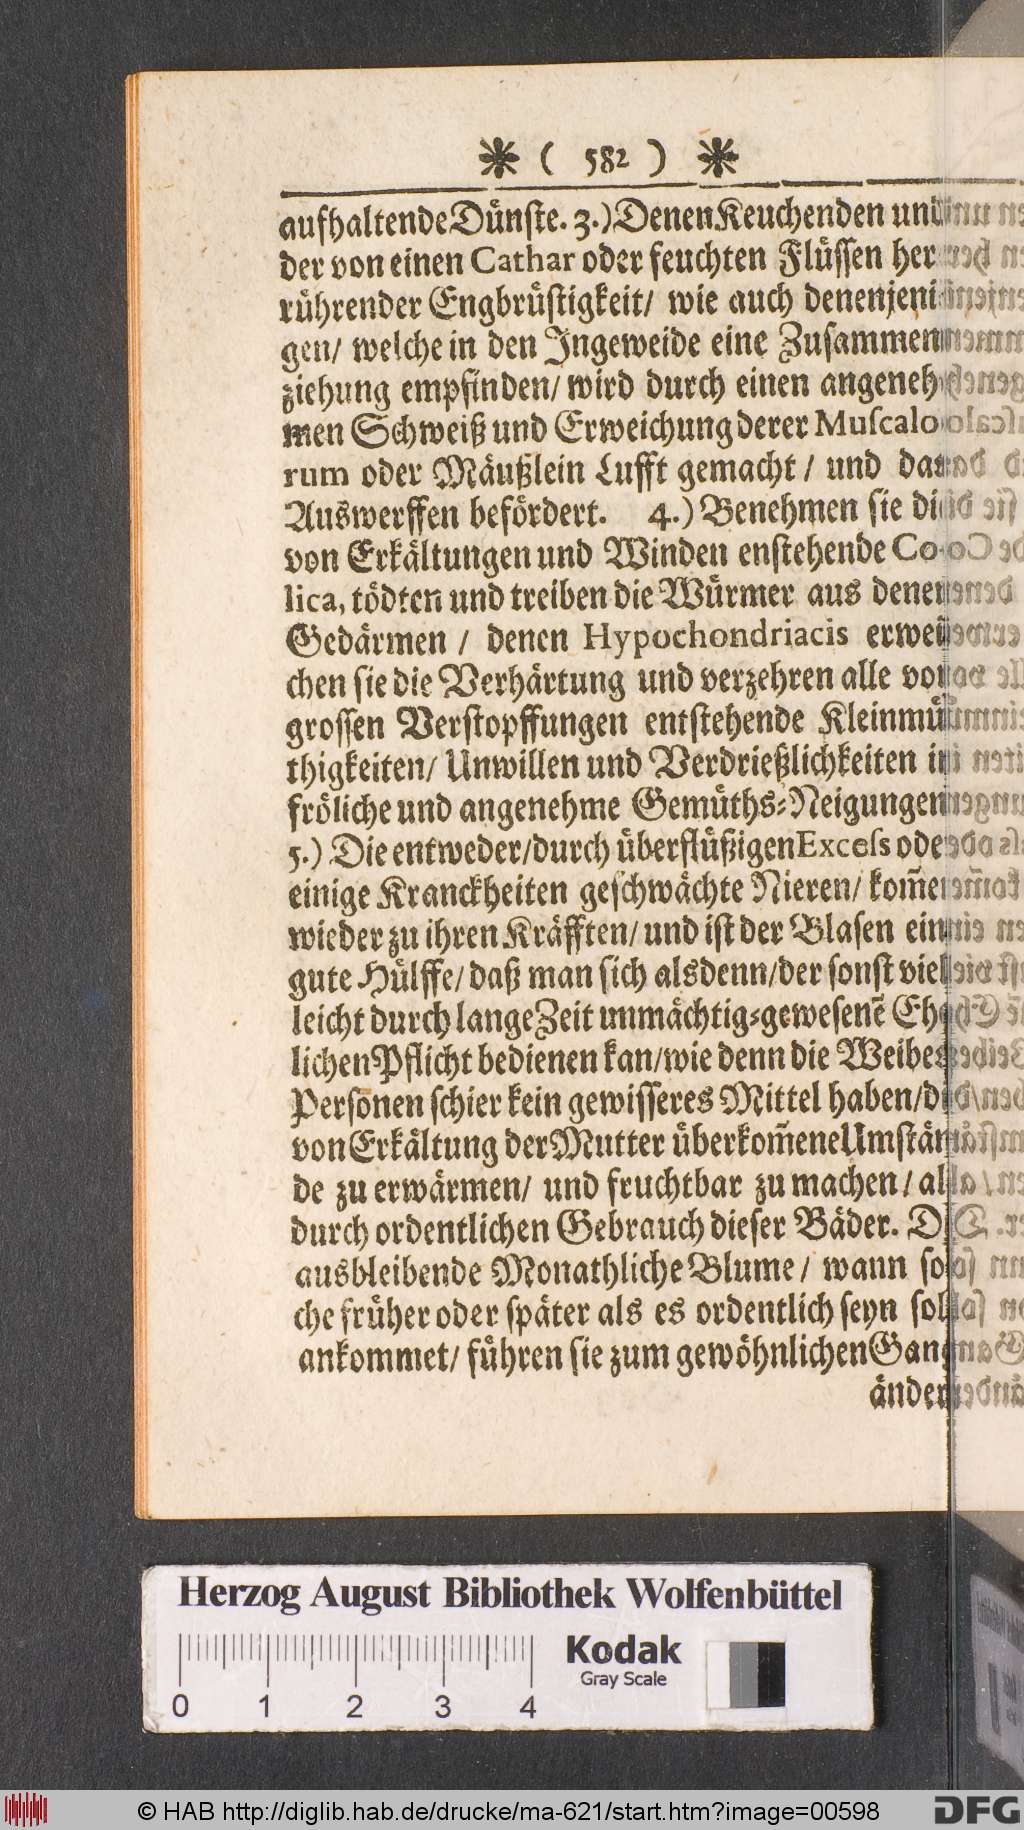 * ( 582 ) *
aufhaltende Dünste. 3.) Denen Keuchenden und
der von einen Cathar oder feuchten Flüssen her
rührender Engbrüstigkeit/ wie auch denenjeni
gen/ welche in den Ingeweide eine Zusammen
ziehung empfinden/ wird durch einen angeneh
men Schweiß und Erweichung derer Muscalo
rum oder Mäußlein Lufft gemacht / und das
Auswerffen befördert. 4.) Benehmen sie die
von Erkältungen und Winden enstehende Co-
lica, tödten und treiben die Würmer aus denen
Gedärmen / denen Hypochondriacis erwei
chen sie die Verhärtung und verzehren alle von
grossen Verstopffungen entstehende Kleinmü
thigkeiten/ Unwillen und Verdrießlichkeiten in
fröliche und angenehme Gemüths-Neigungen
5.) Die entweder/durch überflüßigen Excess oder
einige Kranckheiten geschwächte Nieren/ kom̃en
wieder zu ihren Kräfften/ und ist der Blasen ein
gute Hülffe/ daß man sich alsdenn/der sonst viel
leicht durch lange Zeit unmächtig-gewesenẽ Ehe
lichen Pflicht bedienen kan/wie denn die Weibes
Personen schier kein gewisseres Mittel haben/die
von Erkältung der Mutter überkom̃ene Umstän
de zu erwärmen/ und fruchtbar zu machen / als
durch ordentlichen Gebrauch dieser Bäder. Die
ausbleibende Monathliche Blume / wann sol
che früher oder später als es ordentlich seyn soll
ankommet/ führen sie zum gewöhnlichen Gang
änder
Herzog August Bibliothek Wolfenbüttel
Kodak
Gray Scale
0 1 2 3 4
© HAB http://diglib.hab.de/drucke/ma-621/start.htm?image=00598
DFG